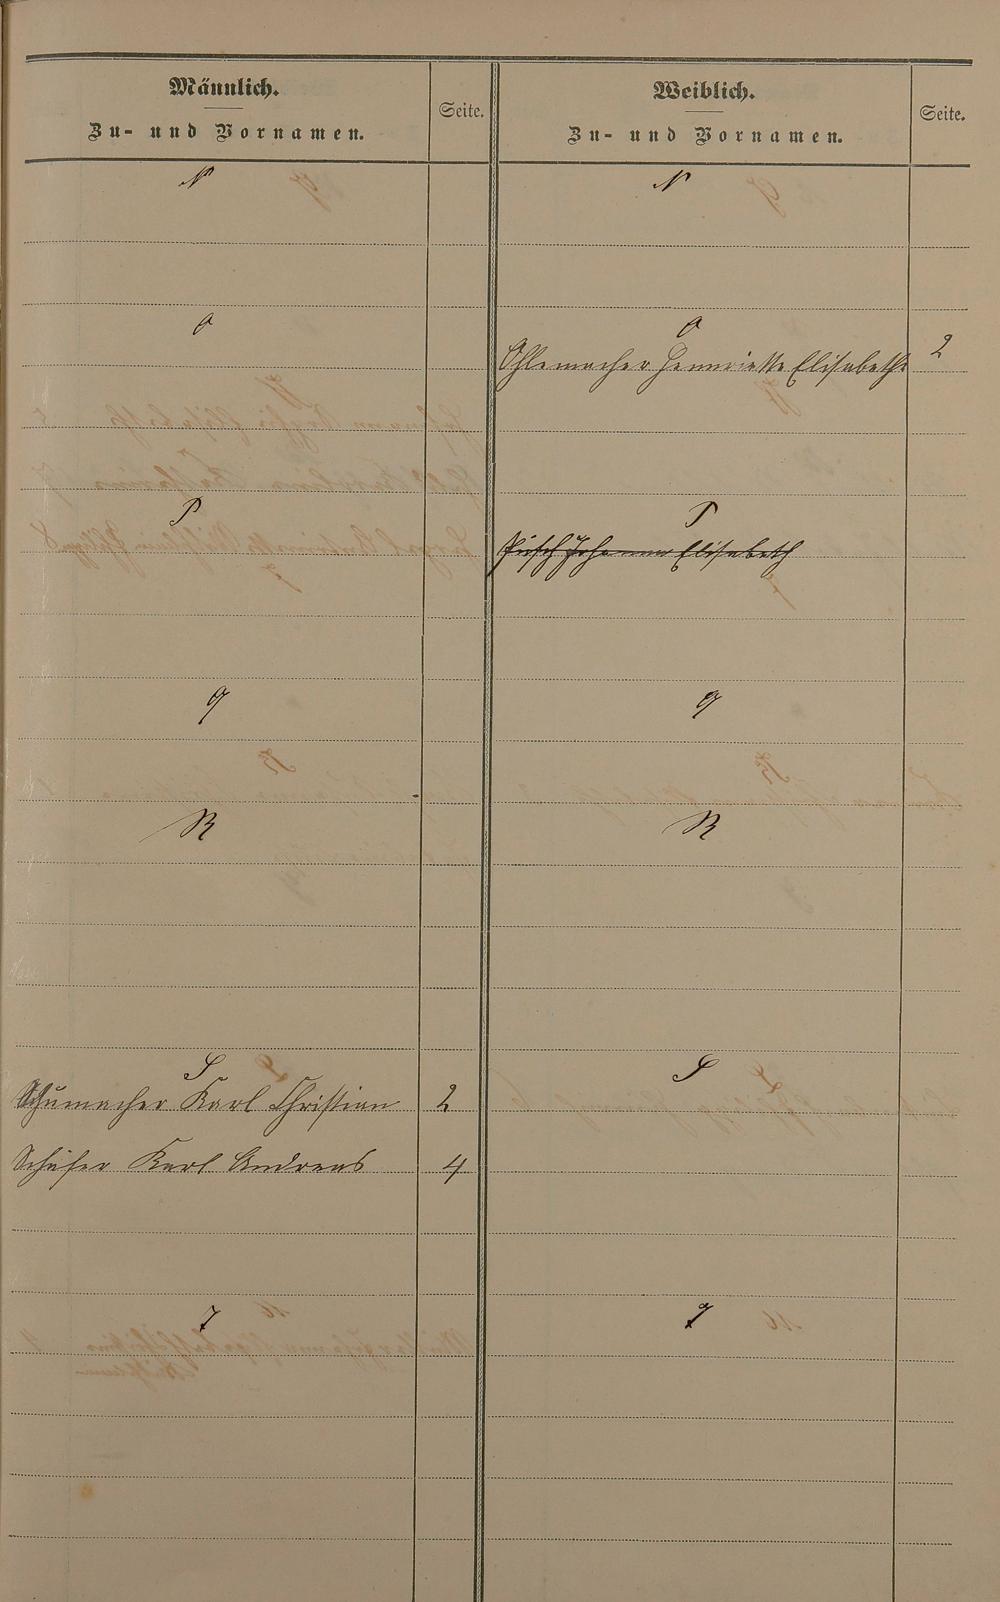 Männlich.
Zu- und Vornamen.
Seite.
Weiblich.
Zu- und Vornamen.
Seite.
N
N
O
O
Ohlemacher Henriette Elisabethe 2
P
P
Johanna Elisabeth
Q
Q
R
R
S
S
Schumacher Karl Christian 2
Schäfer Karl Andreas 4
T
T